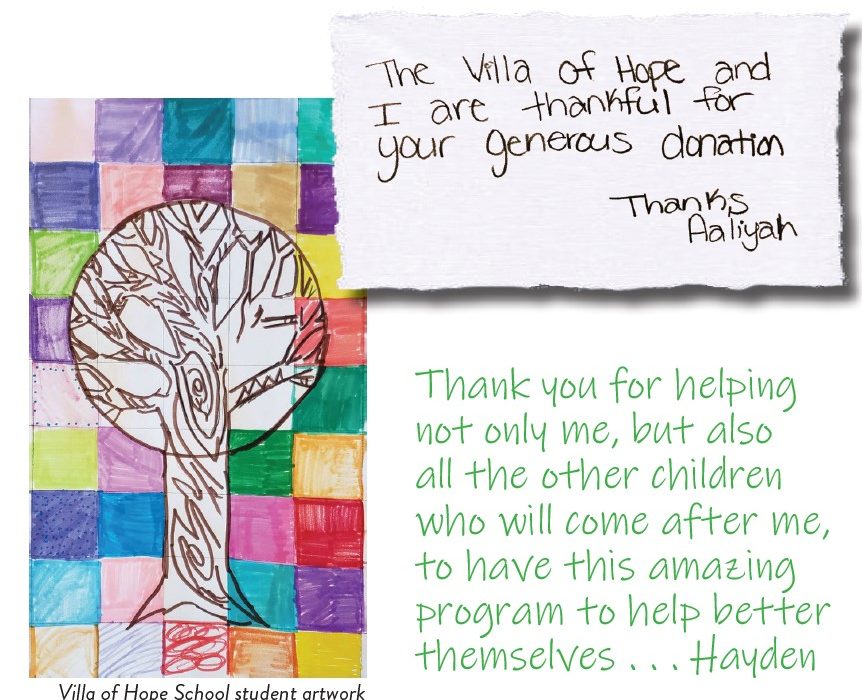 The Villa of Hope and
I are thankful for
your generous donation
Thanks
Aaliyah
Thank you for helping
not only me, but also
all the other children
who will come after me,
to have this amazing
program to help better
themselves . . . Hayden
Villa of Hope School student artwork